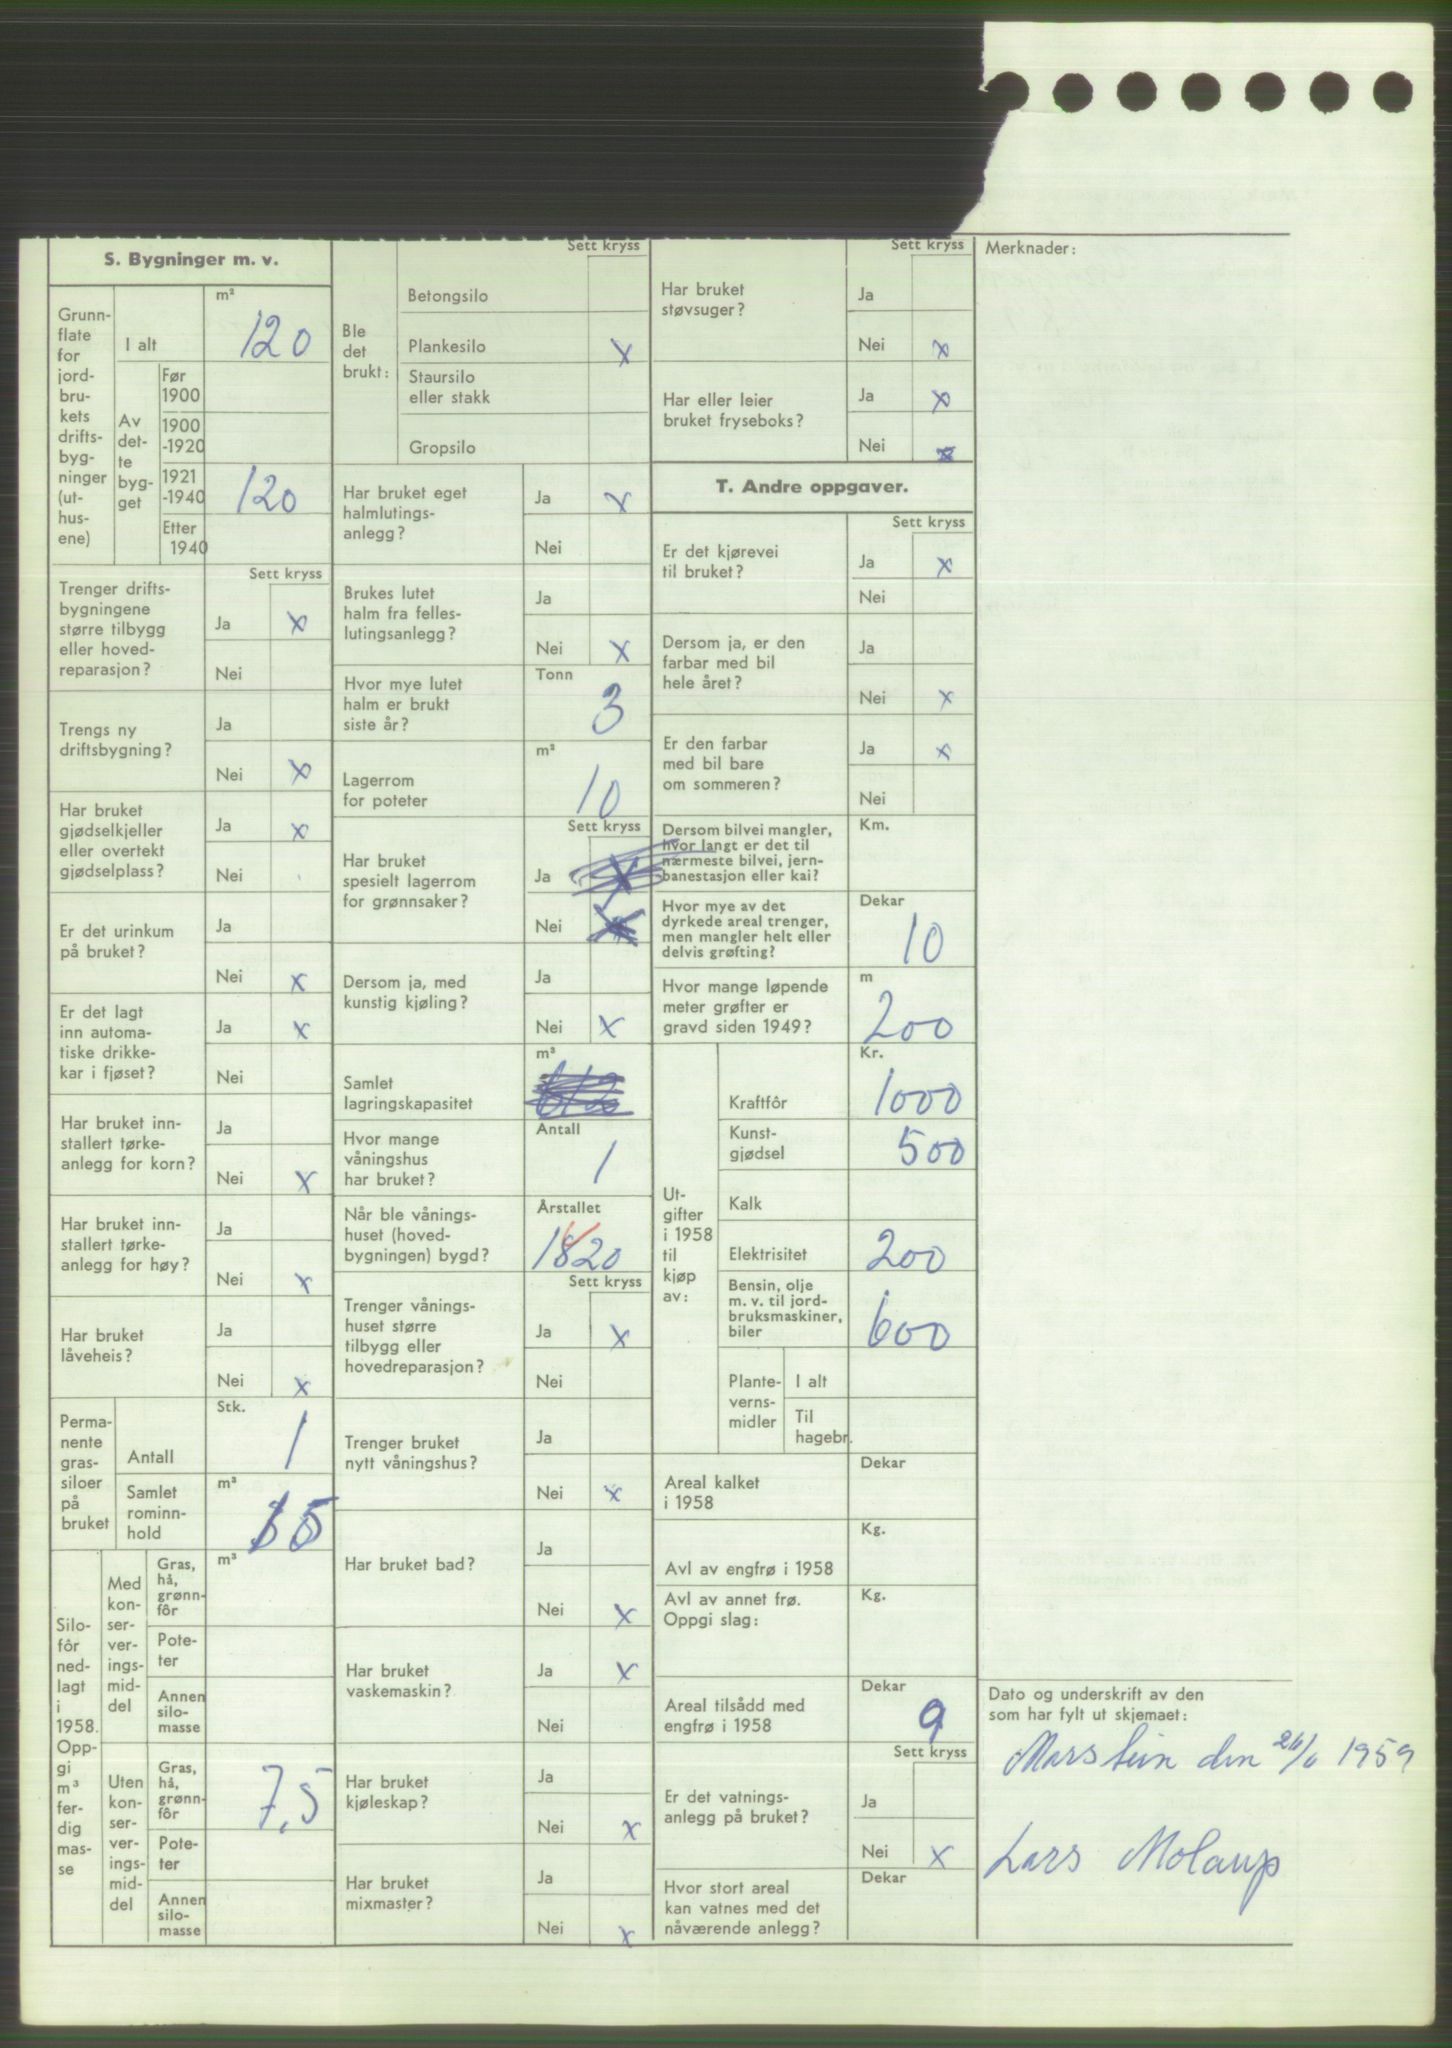 S. Bygninger m. v.
Grunn-
flate
for
jord-
bru-
kets
drifts-
byg-
ninger
(ut-
hus-
ene)
I alt
m²
120
Av
det-
te
byg-
get
Før
1900
1900
-1920
1921
-1940
120
Etter
1940
Sett kryss
Trenger drifts-
bygningene
større tilbygg
eller hoved-
reparasjon?
Ja x
Nei
Trengs ny
driftsbygning?
Ja
Nei x
Har bruket
gjødselkjeller
eller overtekt
gjødselplass?
Ja x
Nei
Er det urinkum
på bruket?
Ja
Nei x
Er det lagt
inn automa-
tiske drikke-
kar i fjøset?
Ja x
Nei
Har bruket inn-
stallert tørke-
anlegg for korn?
Ja
Nei x
Har bruket inn-
stallert tørke-
anlegg for høy?
Ja
Nei x
Har bruket
låveheis?
Ja
Nei x
Perma-
nente
gras-
siloer
på
bruket
Antall
Stk.
1
Samlet
rominn-
hold
m³
15
Silo-
fôr
ned-
lagt
i
1958.
Opp-
gi
m³
fer-
dig
mas-
se
Med
kon-
ser-
ver-
ings-
mid-
del
Gras,
hå,
grønn-
fôr
m³
Pote-
ter
Annen
silo-
masse
Uten
kon-
ser-
ver-
ings-
mid-
del
Gras,
hå,
grønn-
fôr
7,5
Pote-
ter
Annen
silo-
masse
Sett kryss
Ble
det
brukt:
Betongsilo
Plankesilo x
Staursilo
eller stakk
Gropsilo
Har bruket eget
halmlutings-
anlegg?
Ja x
Nei
Brukes lutet
halm fra felles-
lutingsanlegg?
Ja
Nei x
Hvor mye lutet
halm er brukt
siste år?
Tonn
3
Lagerrom
for poteter
m³
10
Sett kryss
Har bruket
spesielt lagerrom
for grønnsaker?
Ja x
Nei x
Dersom ja, med
kunstig kjøling?
Ja
Nei x
Samlet
lagringskapasitet
m³
Hvor mange
våningshus
har bruket?
Antall
1
Når ble vånings-
huset (hoved-
bygningen) bygd?
Årstallet
1820
Sett kryss
Trenger vånings-
huset større
tilbygg eller
hovedreparasjon?
Ja x
Nei
Trenger bruket
nytt våningshus?
Ja
Nei x
Har bruket bad?
Ja
Nei x
Har bruket
vaskemaskin?
Ja x
Nei
Har bruket
kjøleskap?
Ja
Nei x
Har bruket
mixmaster?
Ja
Nei x
Sett kryss
Har bruket
støvsuger?
Ja
Nei x
Har eller leier
bruket fryseboks?
Ja x
Nei x
T. Andre oppgaver.
Sett kryss
Er det kjørevei
til bruket?
Ja x
Nei
Dersom ja, er den
farbar med bil
hele året?
Ja
Nei x
Er den farbar
med bil bare
om sommeren?
Ja x
Nei
Dersom bilvei mangler,
hvor langt er det til
nærmeste bilvei, jern-
banestasjon eller kai?
Km.
Hvor mye av det
dyrkede areal trenger,
men mangler helt eller
delvis grøfting?
Dekar
10
Hvor mange løpende
meter grøfter er
gravd siden 1949?
m
200
Ut-
gifter
i 1958
til
kjøp
av:
Kr.
Kraftfôr 1000
Kunst-
gjødsel 500
Kalk
Elektrisitet 200
Bensin, olje
m. v. til jord-
bruksmaskiner,
biler
600
Plante-
verns-
midler
I alt
Til
hagebr.
Areal kalket
i 1958
Dekar
Avl av engfrø i 1958
Kg.
Avl av annet frø.
Oppgi slag:
Kg.
Areal tilsådd med
engfrø i 1958
Dekar
9
Sett kryss
Er det vatnings-
anlegg på bruket?
Ja
Nei x
Hvor stort areal
kan vatnes med det
nåværende anlegg?
Dekar
Merknader:
Dato og underskrift av den
som har fylt ut skjemaet:
Marstein den 26/6 1959
Lars Molaup